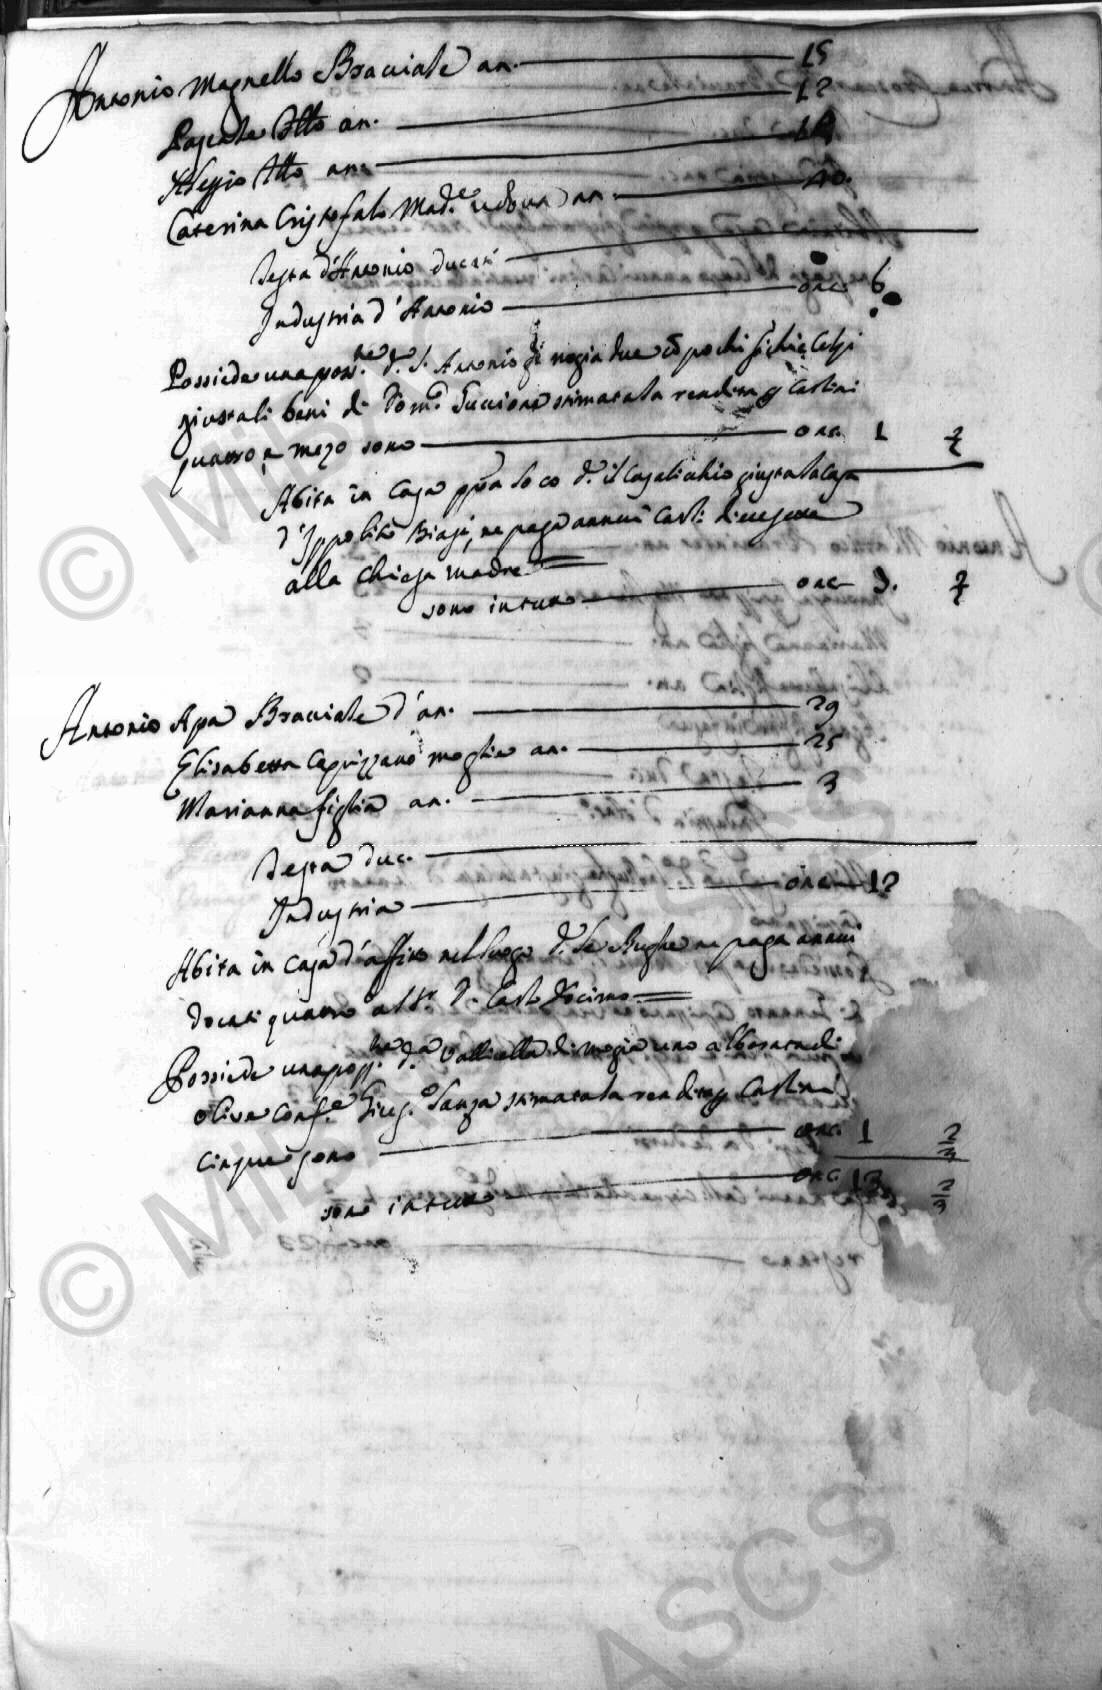 Antonio Magnello Bracciale an. 15
Pascale Atto an. 12
Alessio Atto an. 10
Caterina Cristofalo Mad.e vedova an. 40.
Testa d'Antonio ducati
Industria d'Antonio onc. 6
Possiede una poss.ne d.a S. Antonio di mogia due con pochi fichi e Celsi
giusta li beni di Dom.o Succione stimata la rendita Carlini
quattro, e mezo sono onc. 1 1/2
Abita in Casa loco d.o il Casalicchio giusta la Casa
d'Ippolito Biasi, ne paga annui Carli: diecesette
alla Chiesa madre
sono in tutto onc
Antonio Apa Bracciale d'an. 29
Elisabetta Capizzano moglie an. 25
Marianna figlia an. 3
Testa duc.
Industria onc 12
Abita in Casa d'affitto nel luogo d.o Le Bughe ne paga annui
Docati quattro al Sr. D. Carlo
Possiede una poss.ne d.a Vallicella di mogia uno alborata di
olive Conf.e Gius.e Sanza stimata la rendita Carlini
cinque sono onc. 1 2/3
sono in tutto onc 13 2/3
© MiBAC
ASCS
© MiBAC
ASCS